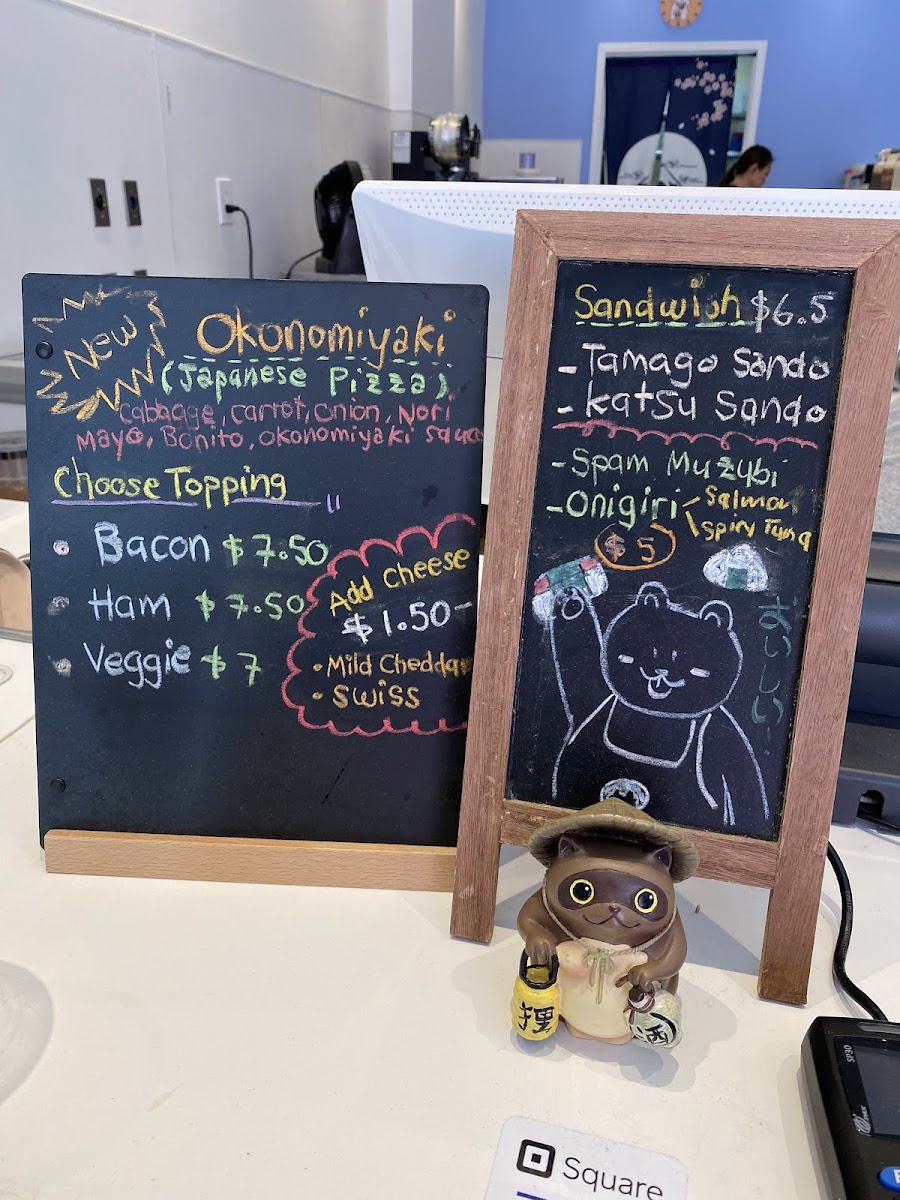 New
Okonomiyaki
(Japanese Pizza)
Cabbage, carrot, onion, Nori
Mayo, Bonito, okonomiyaki sauce
Choose Topping
Bacon $7.50
Ham $7.50
Veggie $7
Add Cheese
$1.50-
• Mild Cheddar
• Swiss
Sandwish $6.5
- Tamago Sando
- Katsu Sando
- Spam Muzubi
- Onigiri
Salmon
Spicy Tuna
$5
おいしい
狸
酒
Square
SP30